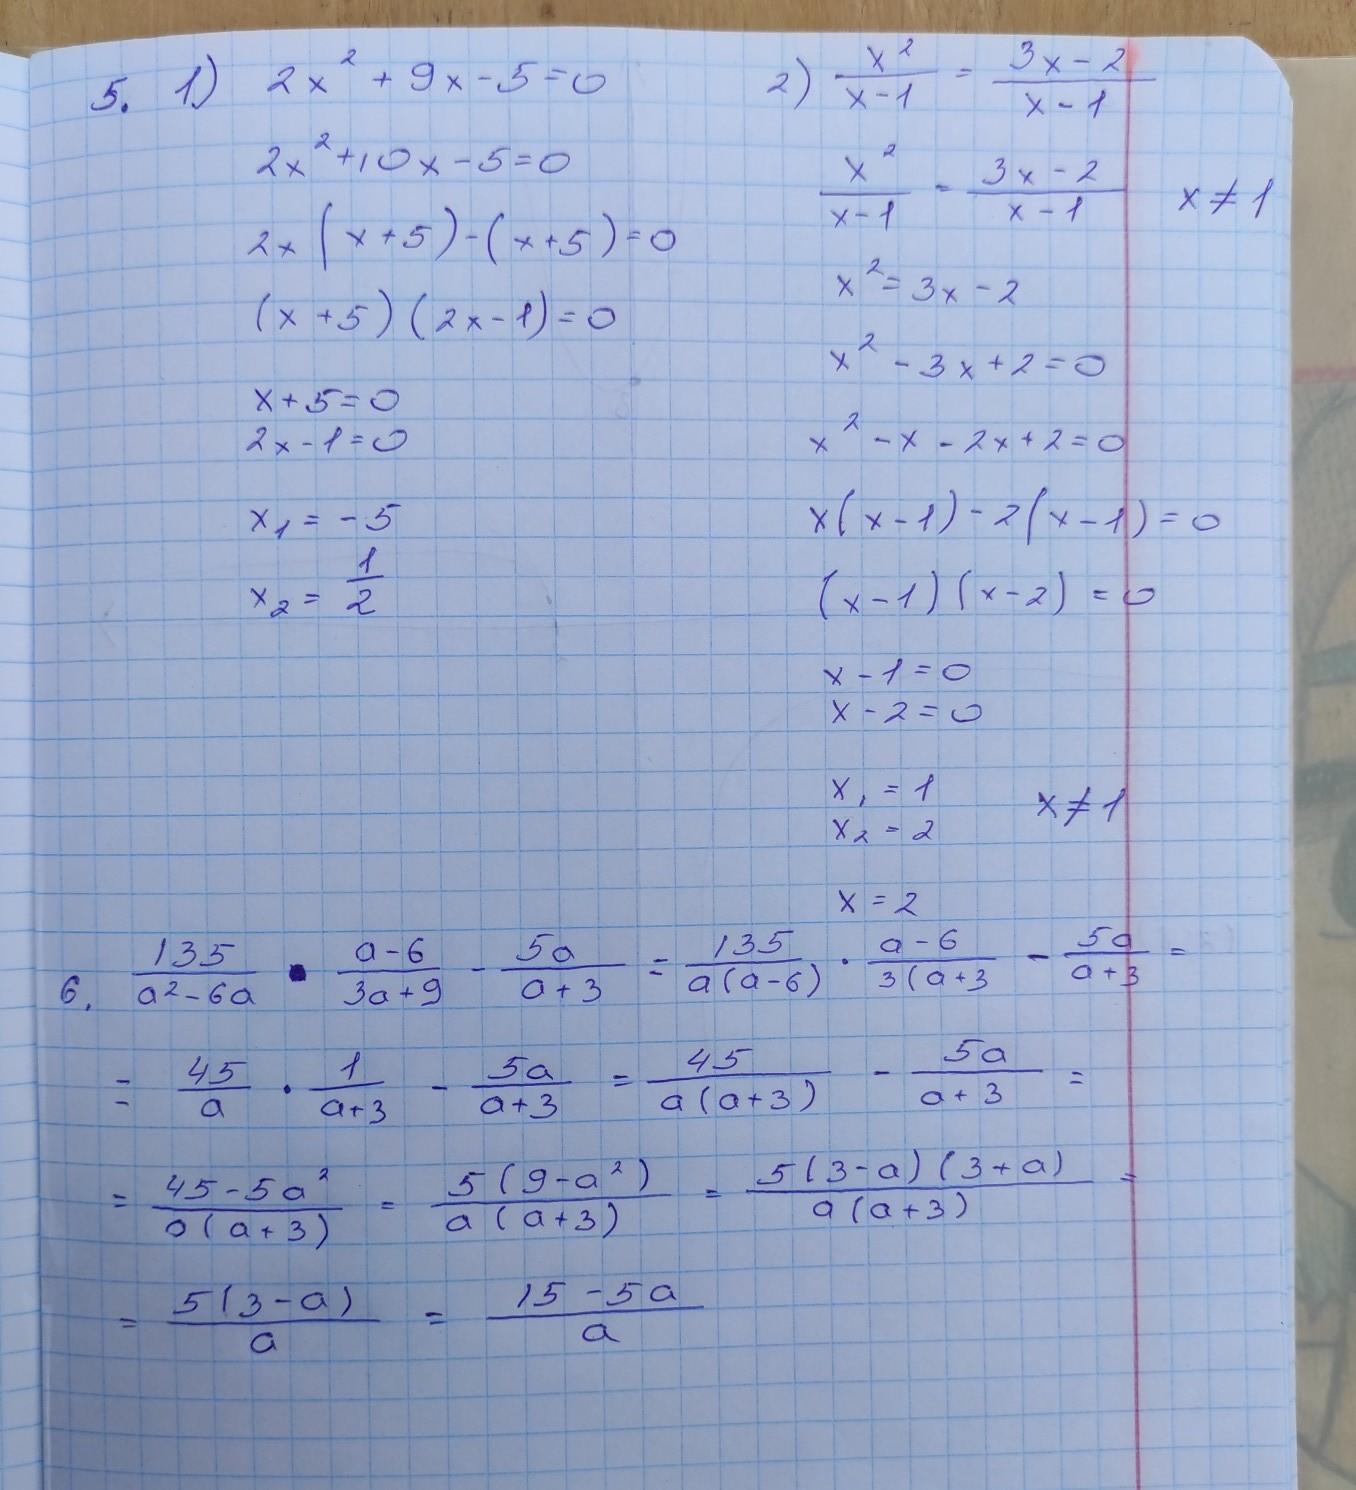 5. 1) 2x² + 9x - 5 = 0
2x² + 10x - 5 = 0
2x (x + 5) - (x + 5) = 0
(x + 5) (2x - 1) = 0
x + 5 = 0
2x - 1 = 0
x₁ = - 5
x₂ = 1/2
2) x²/(x - 1) = (3x - 2)/(x - 1)
x²/(x - 1) = (3x - 2)/(x - 1) x ≠ 1
x² = 3x - 2
x² - 3x + 2 = 0
x² - x - 2x + 2 = 0
x(x - 1) - 2(x - 1) = 0
(x - 1) (x - 2) = 0
x - 1 = 0
x - 2 = 0
x₁ = 1 x ≠ 1
x₂ = 2
x = 2
6. 135/(a² - 6a) · (a - 6)/(3a + 9) - 5a/(a + 3) = 135/(a(a - 6)) · (a - 6)/(3(a + 3) - 5a/(a + 3) =
= 45/a · 1/(a + 3) - 5a/(a + 3) = 45/(a(a + 3)) - 5a/(a + 3) =
= (45 - 5a²)/(a(a + 3)) = 5(9 - a²)/(a(a + 3)) = 5(3 - a)(3 + a)/(a(a + 3)) =
= 5(3 - a)/a = (15 - 5a)/a